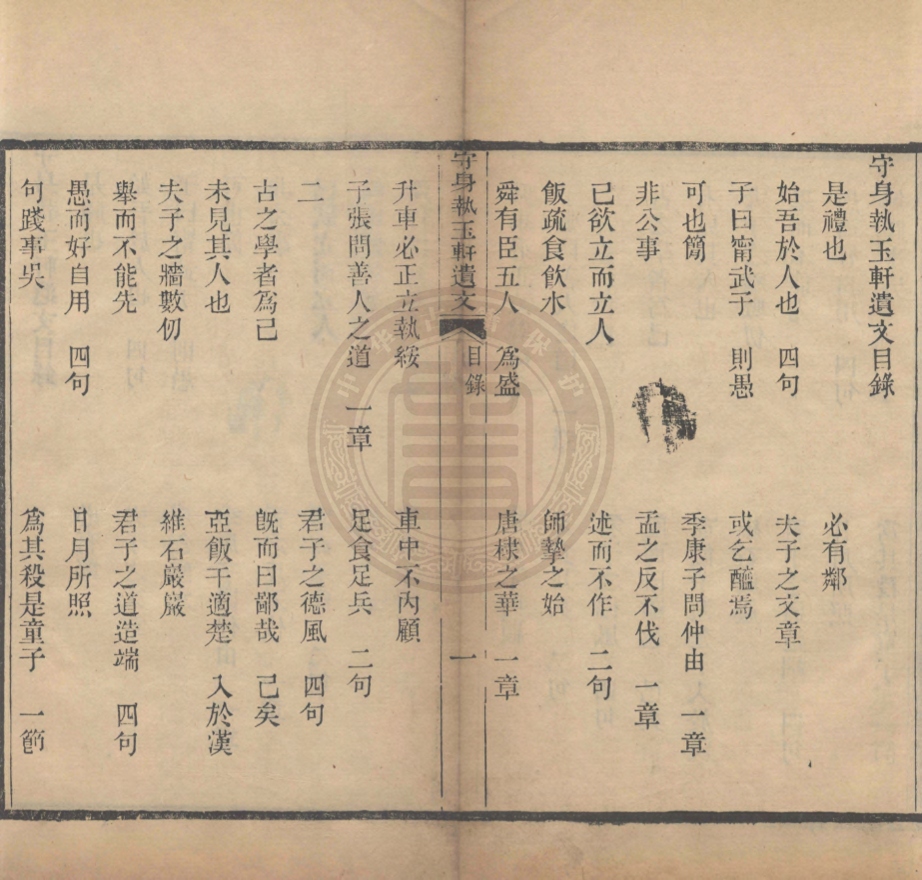 守身執玉軒遺文目錄
是禮也 必有鄰
始吾於人也 四句 夫子之文章
子曰甯武子 則愚 或乞醯焉
可也簡 季康子問仲由 一章
非公事 孟之反不伐 一章
己欲立而立人 述而不作 二句
飯疏食飲水 師摯之始
舜有臣五人 爲盛 唐棣之華 一章
守身執玉軒遺文 目錄 一
升車必正立執綏 車中不內顧
子張問善人之道 一章 足食足兵 二句
二 君子之德風 四句
古之學者爲己 旣而曰鄙哉 己矣
未見其人也 亞飯干適楚 入於漢
夫子之牆數仞 維石巖巖
舉而不能先 君子之道造端 四句
愚而好自用 四句 日月所照
句踐事吳 爲其殺是童子 一節